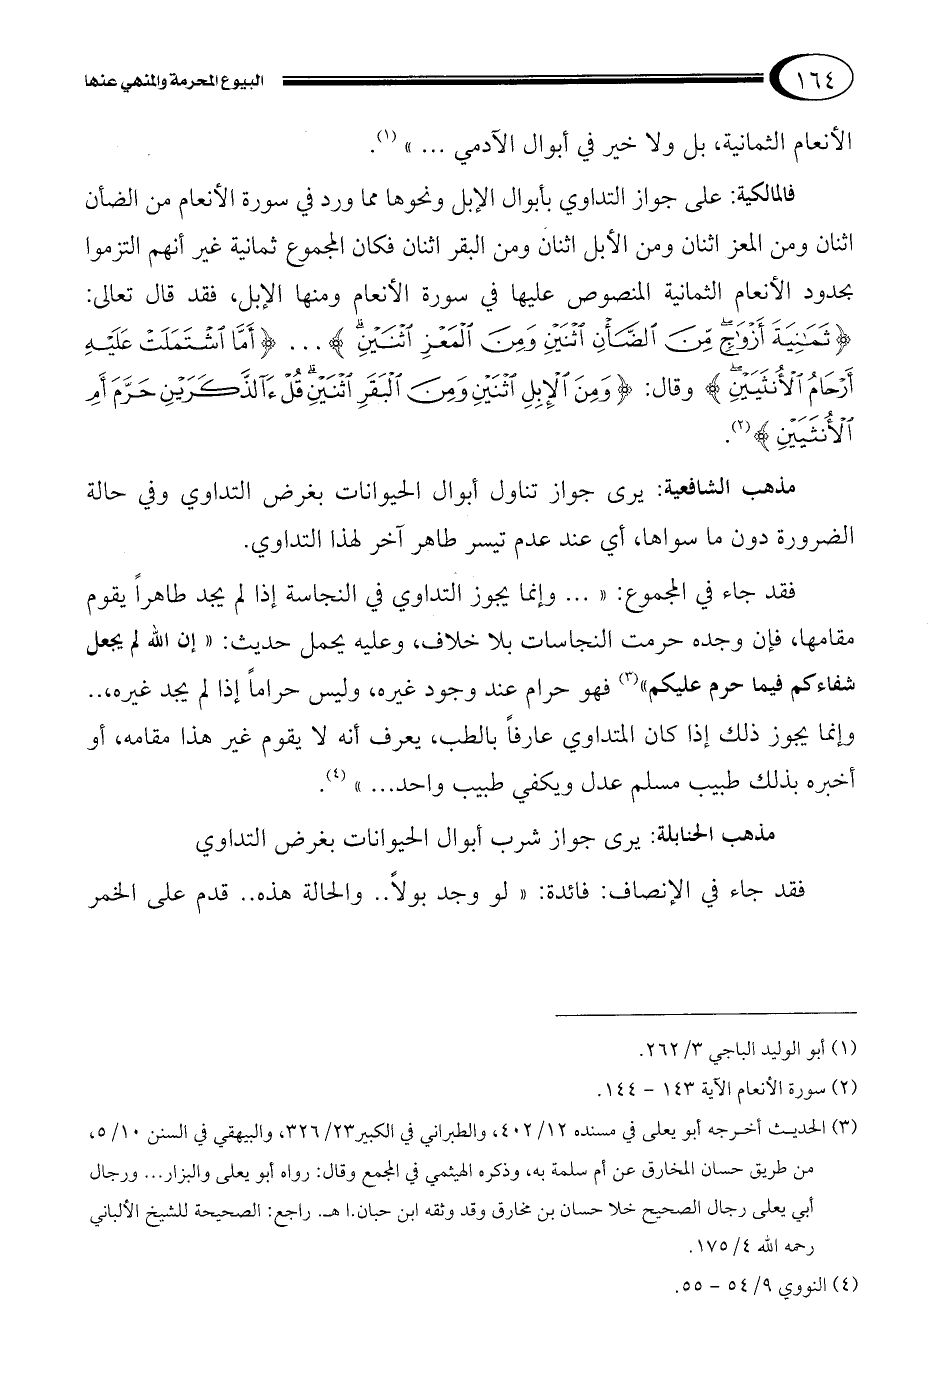 ١٦٤ البيوع المحرمة والمنهي عنها
الأنعام الثمانية، بل ولا خير في أبوال الآدمي ... » (١).
فالمالكية: على جواز التداوي بأبوال الإبل ونحوها مما ورد في سورة الأنعام من الضأن
اثنان ومن المعز اثنان ومن الأبل اثنان ومن البقر اثنان فكان المجموع ثمانية غير أنهم التزموا
بحدود الأنعام الثمانية المنصوص عليها في سورة الأنعام ومنها الإبل، فقد قال تعالى:
﴿ ثَمَٰنِيَةَ أَزْوَٰجٍۖ مِّنَ ٱلضَّأْنِ ٱثْنَيْنِ وَمِنَ ٱلْمَعْزِ ٱثْنَيْنِۗ ﴾ ... ﴿ أَمَّا ٱشْتَمَلَتْ عَلَيْهِ
أَرْحَامُ ٱلْأُنثَيَيْنِۖ ﴾ وقال: ﴿ وَمِنَ ٱلْإِبِلِ ٱثْنَيْنِ وَمِنَ ٱلْبَقَرِ ٱثْنَيْنِۗ قُلْ ءَآلذَّكَرَيْنِ حَرَّمَ أَمِ
ٱلْأُنثَيَيْنِ ﴾(٢).
مذهب الشافعية: يرى جواز تناول أبوال الحيوانات بغرض التداوي وفي حالة
الضرورة دون ما سواها، أي عند عدم تيسر طاهر آخر لهذا التداوي.
فقد جاء في المجموع: « ... وإنما يجوز التداوي في النجاسة إذا لم يجد طاهراً يقوم
مقامها، فإن وجده حرمت النجاسات بلا خلاف، وعليه يحمل حديث: « إن الله لم يجعل
شفاءكم فيما حرم عليكم»(٣) فهو حرام عند وجود غيره، وليس حراماً إذا لم يجد غيره،..
وإنما يجوز ذلك إذا كان المتداوي عارفاً بالطب، يعرف أنه لا يقوم غير هذا مقامه، أو
أخبره بذلك طبيب مسلم عدل ويكفي طبيب واحد... » (٤).
مذهب الحنابلة: يرى جواز شرب أبوال الحيوانات بغرض التداوي
فقد جاء في الإنصاف: فائدة: « لو وجد بولاً.. والحالة هذه.. قدم على الخمر
(١) أبو الوليد الباجي ٣/ ٢٦٢.
(٢) سورة الأنعام الآية ١٤٣ – ١٤٤.
(٣) الحديث أخرجه أبو يعلى في مسنده ١٢/ ٤٠٢، والطبراني في الكبير٢٣/ ٣٢٦، والبيهقي في السنن ١٠/ ٥،
من طريق حسان المخارق عن أم سلمة به، وذكره الهيثمي في المجمع وقال: رواه أبو يعلى والبزار... ورجال
أبي يعلى رجال الصحيح خلا حسان بن مخارق وقد وثقه ابن حبان.ا هـ. راجع: الصحيحة للشيخ الألباني
رحمه الله ٤/ ١٧٥.
(٤) النووي ٩/ ٥٤ – ٥٥.